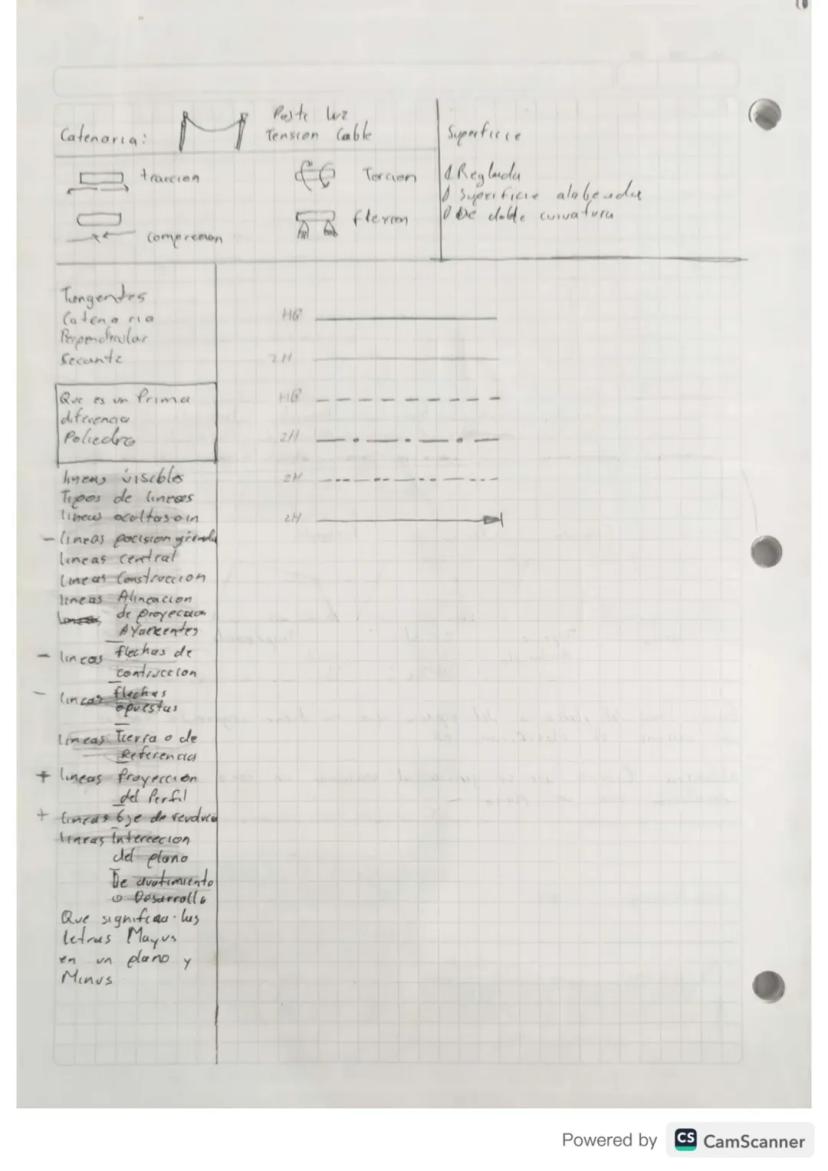 Catenaria:
Poste luz
Tension Cable
traccion
Torcion
compremon
flexion
Superficie
Reglada
Superficie alabeada
De doble curvatura
Tangentes
Catenaria
Perpendicular
Secante
Que es un Prima
diferencia
Poliedro
lineas visibles
Tipos de lineas
lineas ocoltas
- lineas pocision
lineas central
lineas Construccion
lineas Alineacion
de proyeccion
- lineas flechas de
contruccion
- lineas flechas
opuestas
lineas Tierra o de
Referencia
+ lineas Proyeccion
del Perfil
+ lineas Eje de
lineas Interceccion
del plano
De avatimiento
o Desarrollo
Que significa las
letras Mayus
en un plano y
Minus
HB
2H
HB
2H
2H
2H
Powered by CS CamScanner